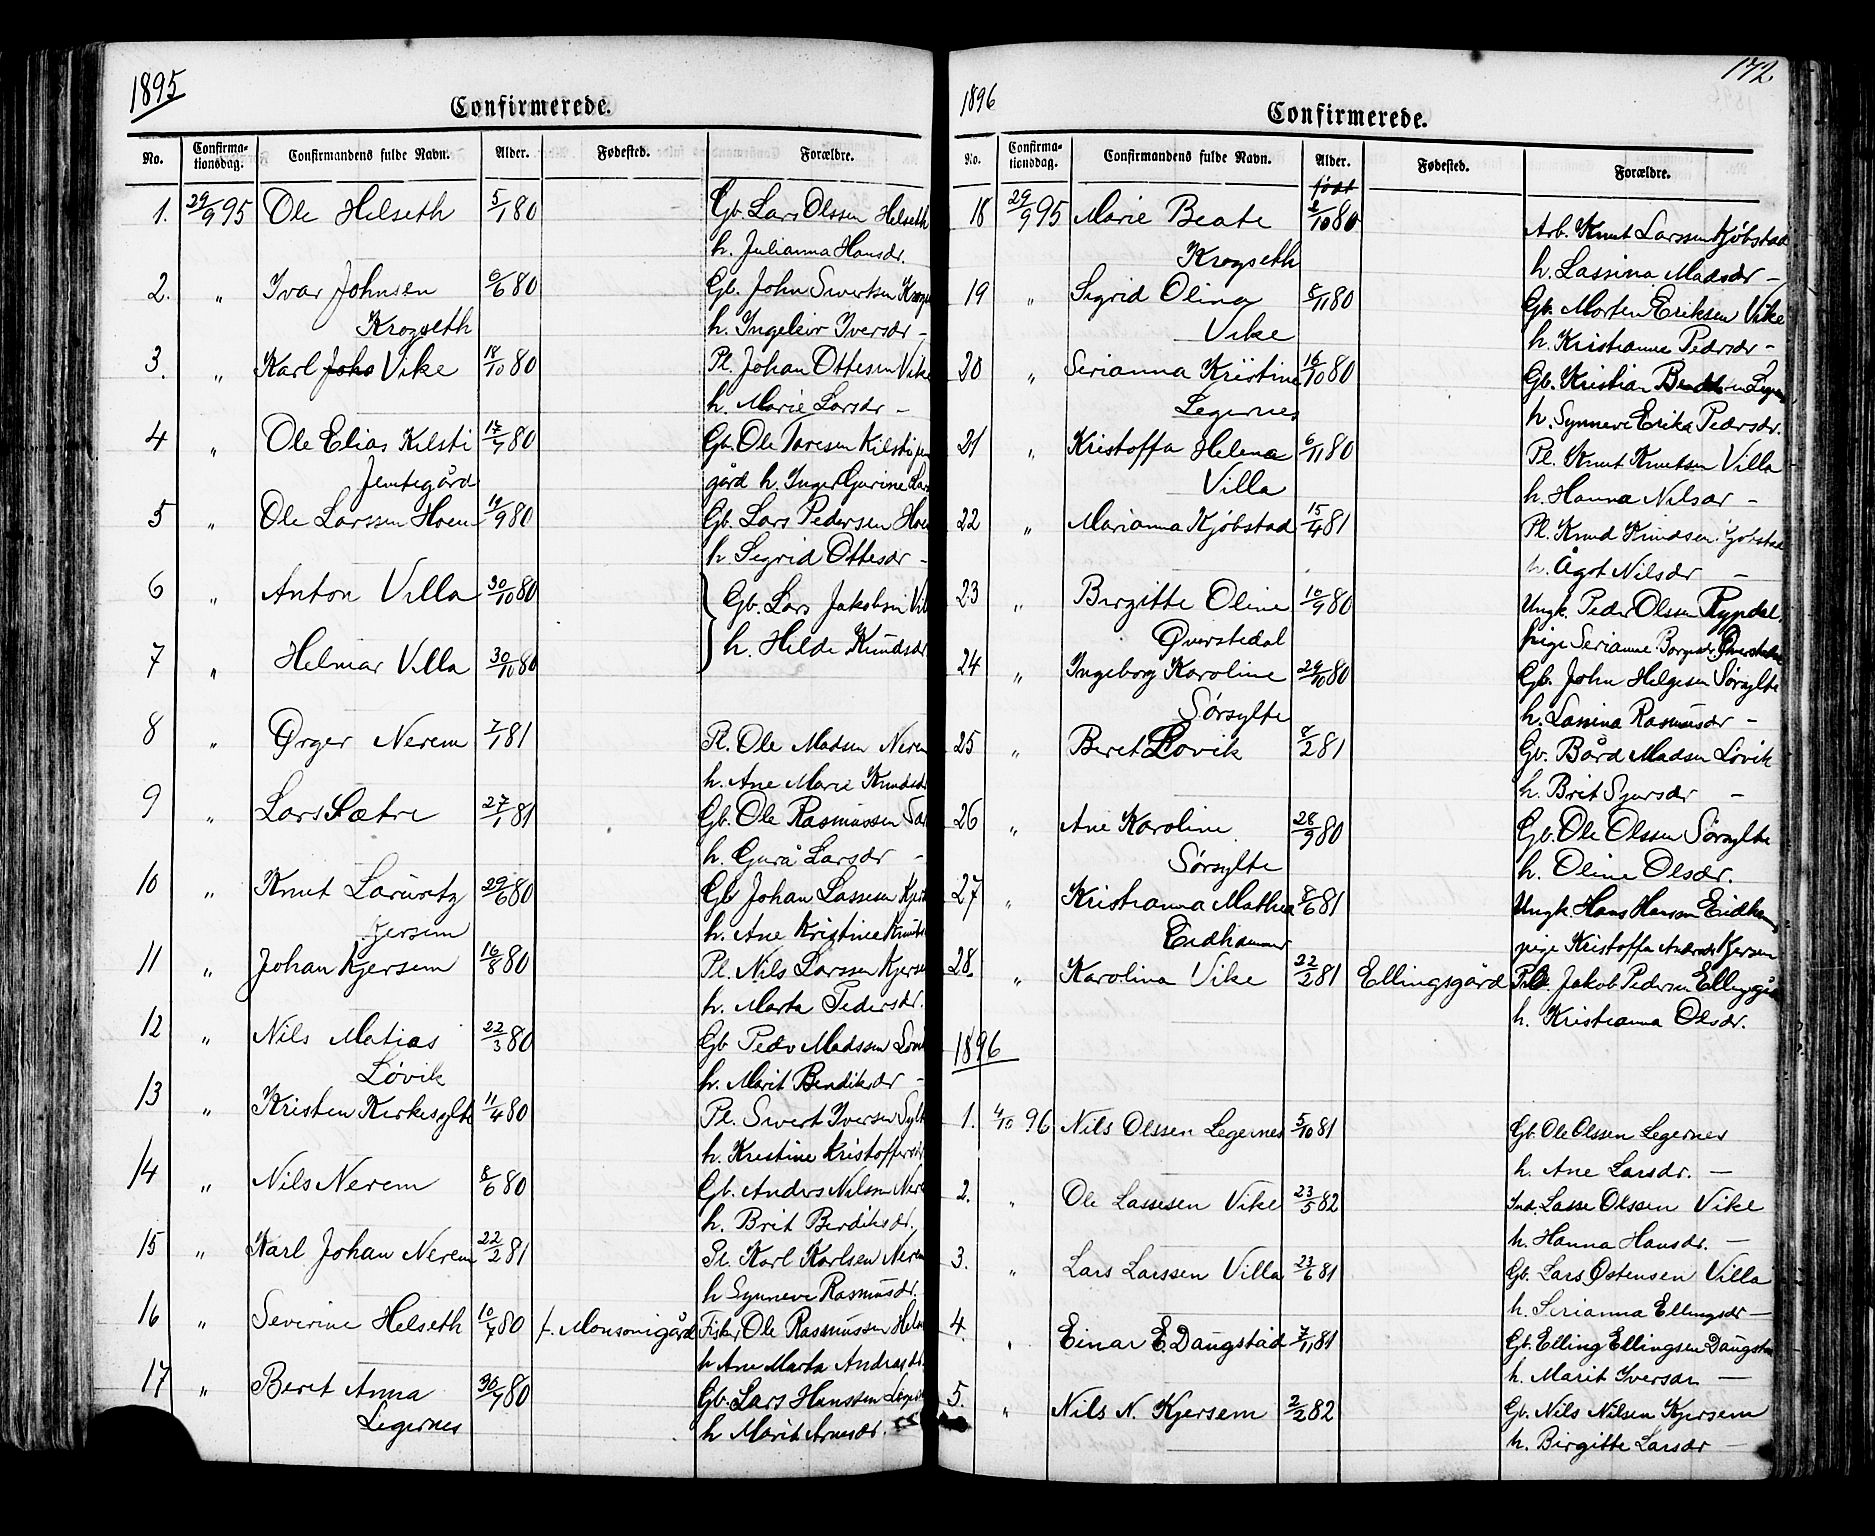 1895
Confirmerede.
No. Confirma-tionsdag. Confirmandens fulde Navn. Alder. Fødested. Forældre.
1. 29/9 95 Ole Helseth 5/1 80 Gb. Lars Olssen Helseth
h. Julianna Hansdr.
2. " Ivar Johnsen 6/6 80 Gb. John Sivertsen
Krogseth h. Ingeleiv Iversdr –
3. " Karl Vike 18/10 80 Pl. Johan Ottesen Vike
h. Marie Larsdr –
4 " Ole Elias Kilsti 17/7 80 Gb. Ole Toresen Kilsti
Jentegård gård h. Inger Gurine Lars
5 " Ole Larssen Hoem 9 80 Gb. Lars Pedersen Hoem
h Sigrid Ottesdr –
6 " Anton Villa 30/10 80 Gb. Lars Jakobsen
h. Hilde Knudsdr
7 " Helmar Villa 30/10 80
8 " Ørger Nerem 7/1 81 Pl. Ole Madsen Nerem
h. Ane Marie Knudsdr
9 " Lars Sætre 27/1 81 Gb. Ole Rasmussen
h. Gurå Larsdr –
10 " Knut Lauritz 29/6 80 Gb Johan Lassesen
Kjersem h. Ane Kristine
11 " Johan Kjersem 16/8 80 Pl. Nils Larssen Kjersem
h. Marta Pedersdr.
12 " Nils Matias 22/3 80 Gb Peder Madssen
Løvik h. Marit Bendiksdr –
13 " Kristen Kirkesylte 11/4 80 Pl. Sivert Iversen
h. Kristine Kristoffersdr
14 " Nils Nerem 8/6 80 Gb. Anders Nilsen
h. Brit Bendiksdr.
15 " Karl Johan Nerem 22/2 81 Pl. Karl Karlsen Nerem
h Synneve Rasmusdr.
16 " Severine Helseth 10/7 80 f. Monsonigård Fisker Ole Rasmussen
h Ane Marta Andrasdr.
17 " Beret Anna 30/7 80 Gb. Lars Hanssen
Legernes h Marit Arnesdr.
172
1896
Confirmerede.
No. Confirma-tionsdag. Confirmandens fulde Navn. Alder. Fødested. Forældre.
født
18 29/9 95 Marie Beate 2/10 80 Arb. Knut Larssen Kjøbstad
Krogseth h. Lassina Madsdr –
19 " Sigrid Olina 8/11 80 Gb. Morten Eriksen Vike
Vike h. Kristianne Pedersdr –
20 " Serianna Kristine 16/10 80 Gb. Kristian
Legernes h. Synneve Erika Pedersdr.
21 " Kristoffa Helena 6/11 80 Pl. Knut Knutsen Villa
Villa h. Hanna Nilsdr –
22 " Marianna Kjøbstad 15/4 81 Pl. Knud Knudsen
h. Ågot Nilsdr –
23 " Birgitte Oline 10/9 80 Ungk. Peder Olssen Rypdal
Øverstedal pige Serianne
24 " Ingeborg Karoline 29/10 80 Gb. John Helgesen Sørsylte
Sørsylte h. Lassina Rasmusdr –
25 " Beret Løvik 8/2 81 Gb. Bård Madsen Løvik
h. Brit Sjursdr –
26 " Ane Karoline 28/9 80 Gb. Ole Olssen Sørsylte
Sørsylte h. Oline Olsdr.
27 " Kristianna Mathea 8/6 81 Ungk. Hans Hanssen
Eidhammer pige Kristoffa Andersdr Kjersem
28. " Karolina Vike 22/2 81 Ellingsgård Jakob Pedersen Ellingsgård
h. Kristianna Olsdr.
1896
1. 4/10 96 Nils Olssen Legernes 5/10 81 Gb. Ole Olssen Legernes
h. Ane Larsdr. –
2. " Ole Lassesen Vike 23/5 82 Ind. Lasse Olssen Vike
h. Hanna Hansdr. –
3. " Lars Larssen Villa 23/6 81 Gb. Lars Ostensen Villa
h. Serianna Ellingsdr –
4. " Einar E. Daugstad 7/11 81 Gb. Elling Ellingsen Daugstad
h. Marit Iversdr –
5. " Nils N. Kjersem 2/2 82 Gb. Nils Nilsen Kjersem
h. Birgitte Larsdr –